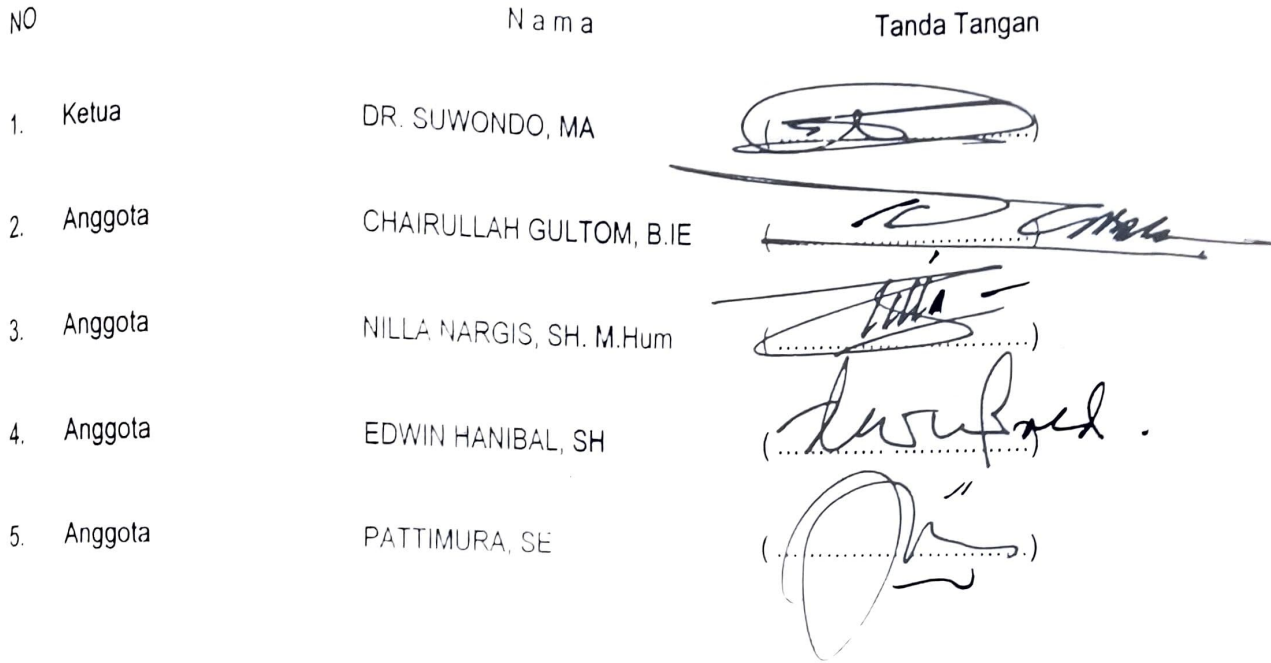 NO N a m a Tanda Tangan
1. Ketua DR. SUWONDO, MA (..............................)
2. Anggota CHAIRULLAH GULTOM, B.IE (..............................)
3. Anggota NILLA NARGIS, SH. M.Hum (..............................)
4. Anggota EDWIN HANIBAL, SH (..............................)
5. Anggota PATTIMURA, SE (..............................)